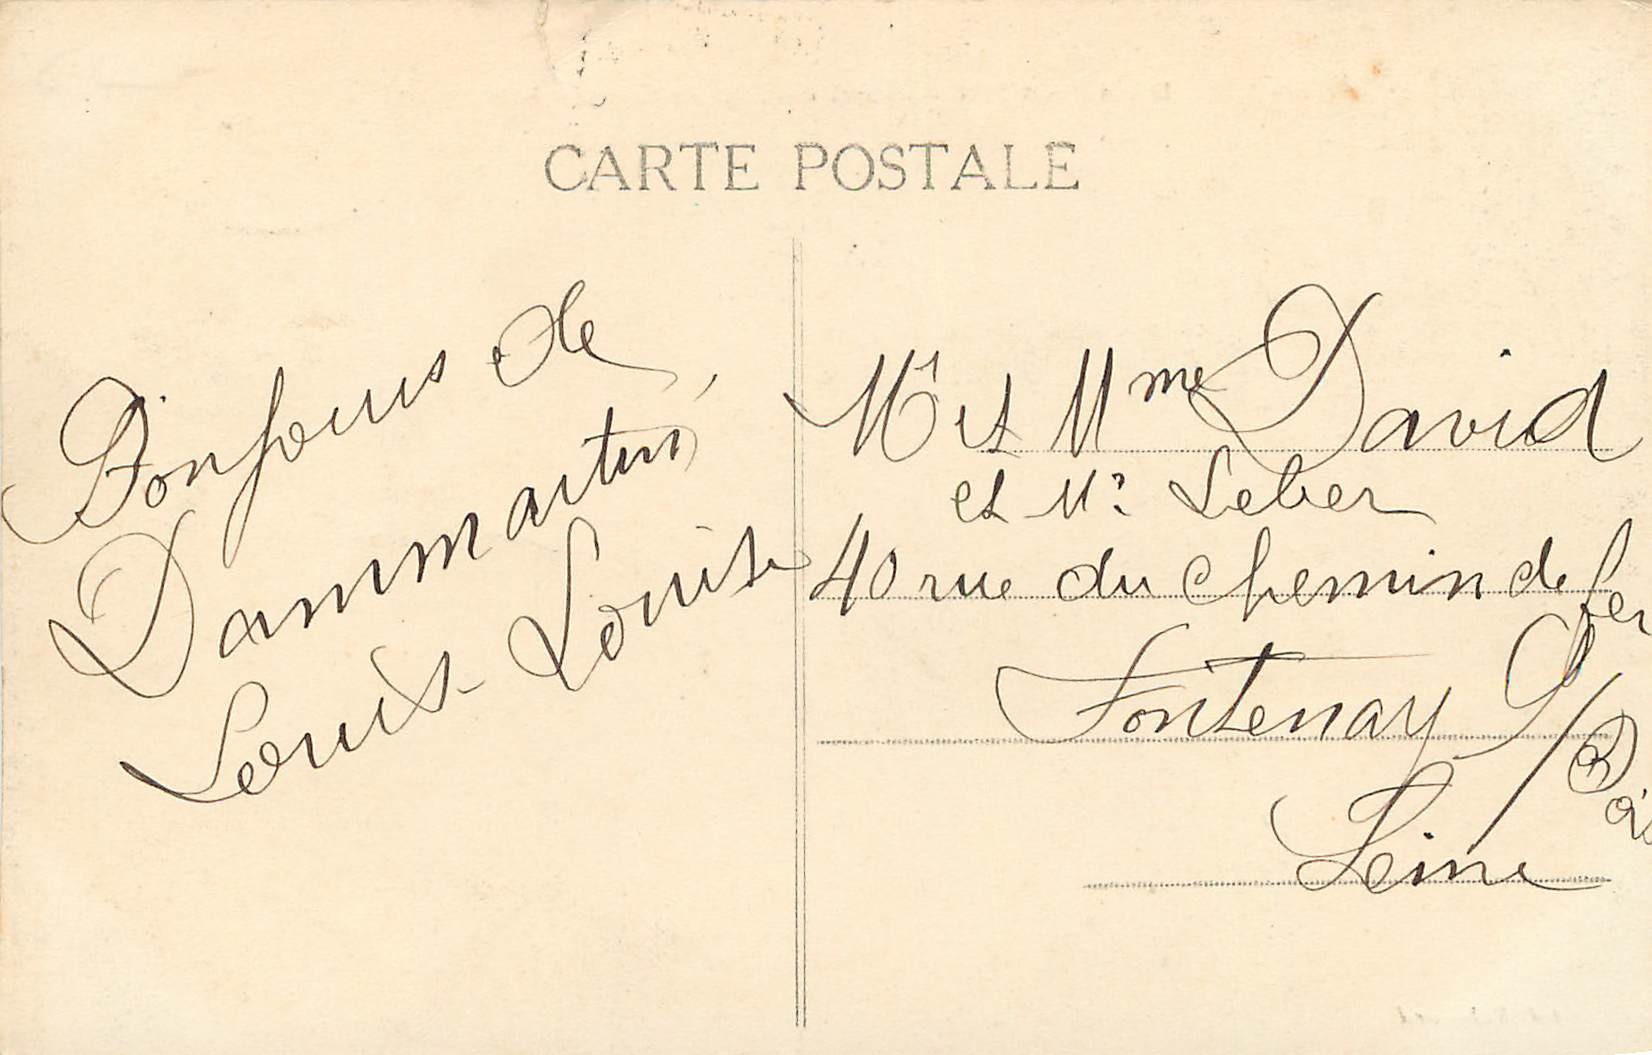 CARTE POSTALE
Bonjours de
Dammartin,
Louis. Louise
Mr et Mme David
et Mr Leber
40 rue du Chemin de fer
Fontenay S/Bois
Seine